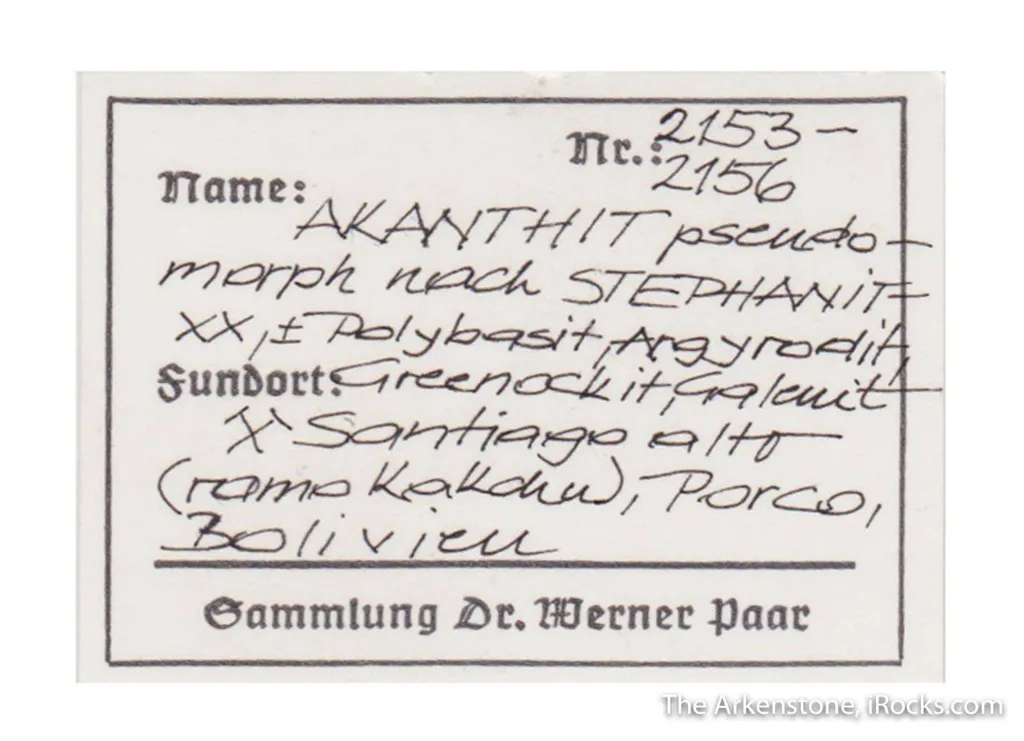 Nr.: 2153 –
2156
Name:
AKANTHIT pseudo-
morph nach STEPHANIT-
XX, ± Polybasit, Argyrodit,
Fundort: Greenockit, Galenit
X Santiago alto
(ramo Kakchu), Porco,
Bolivien
Sammlung Dr. Werner Paar
The Arkenstone, iRocks.com